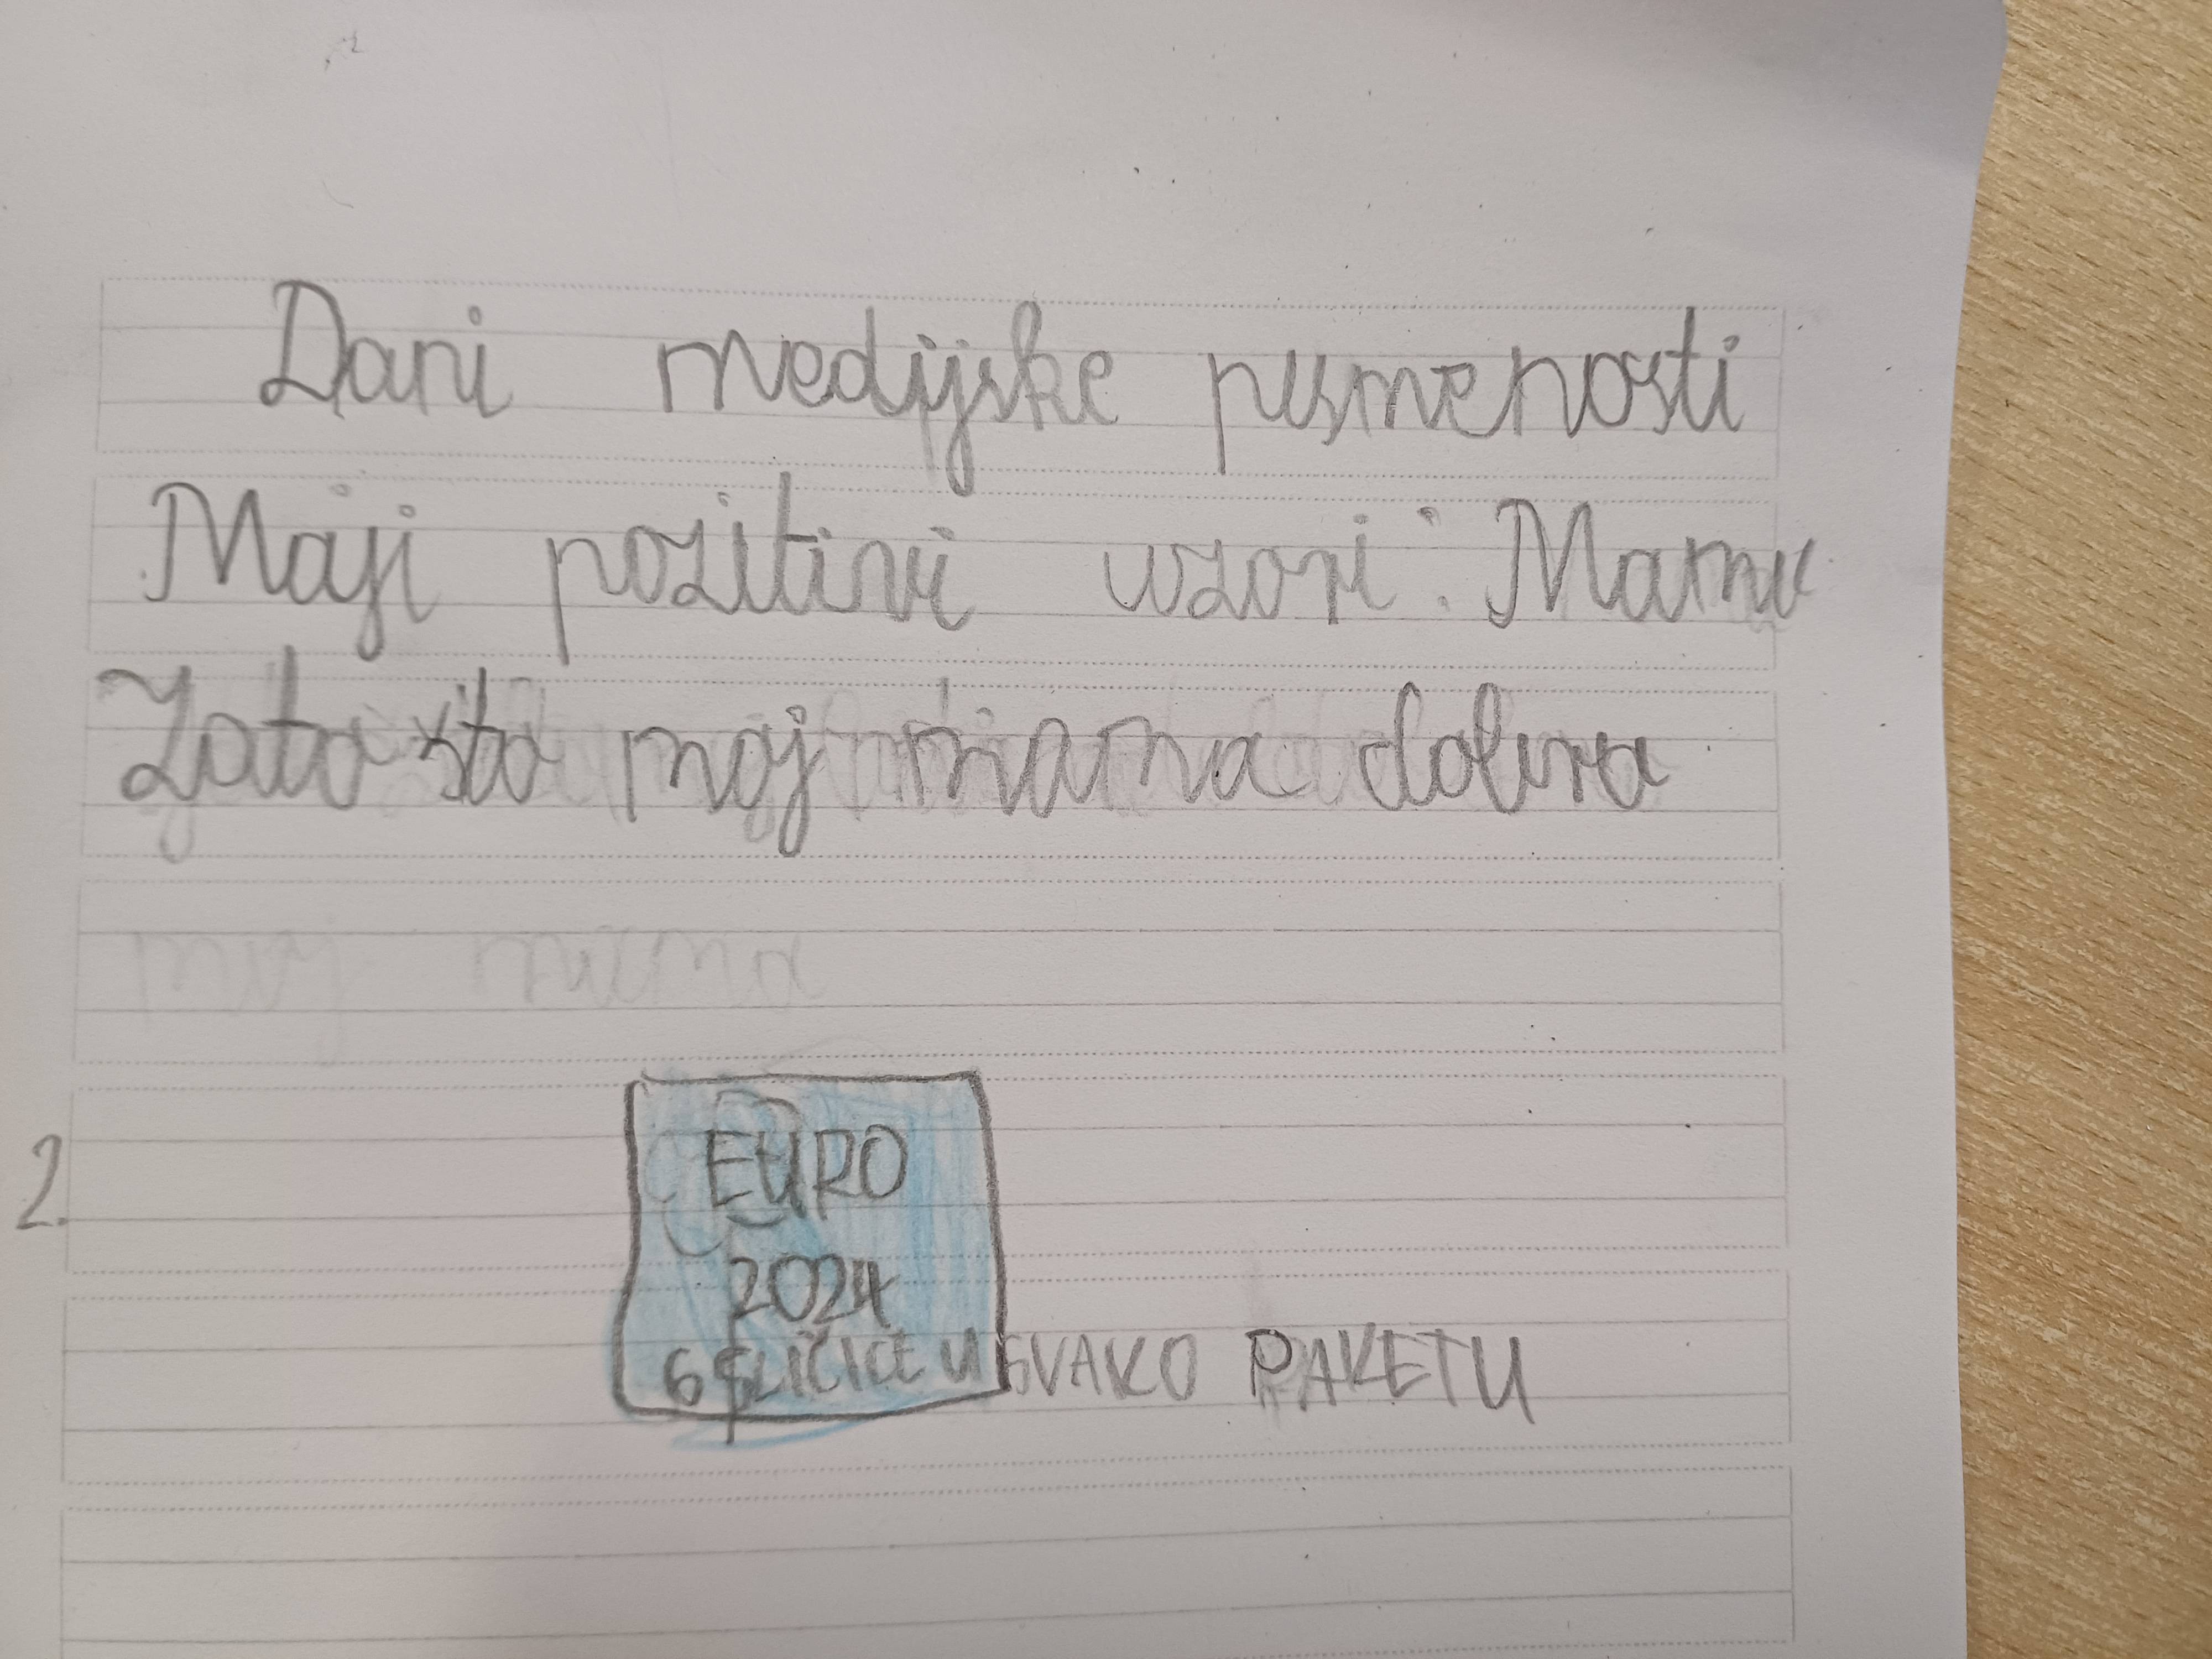 Dani medijske pismenosti
Moji pozitivi uzori: Mama
Zato što moj mama dobra
moj mama
2.
EURO
2024
6 SLIČICE U SVAKO PAKETU